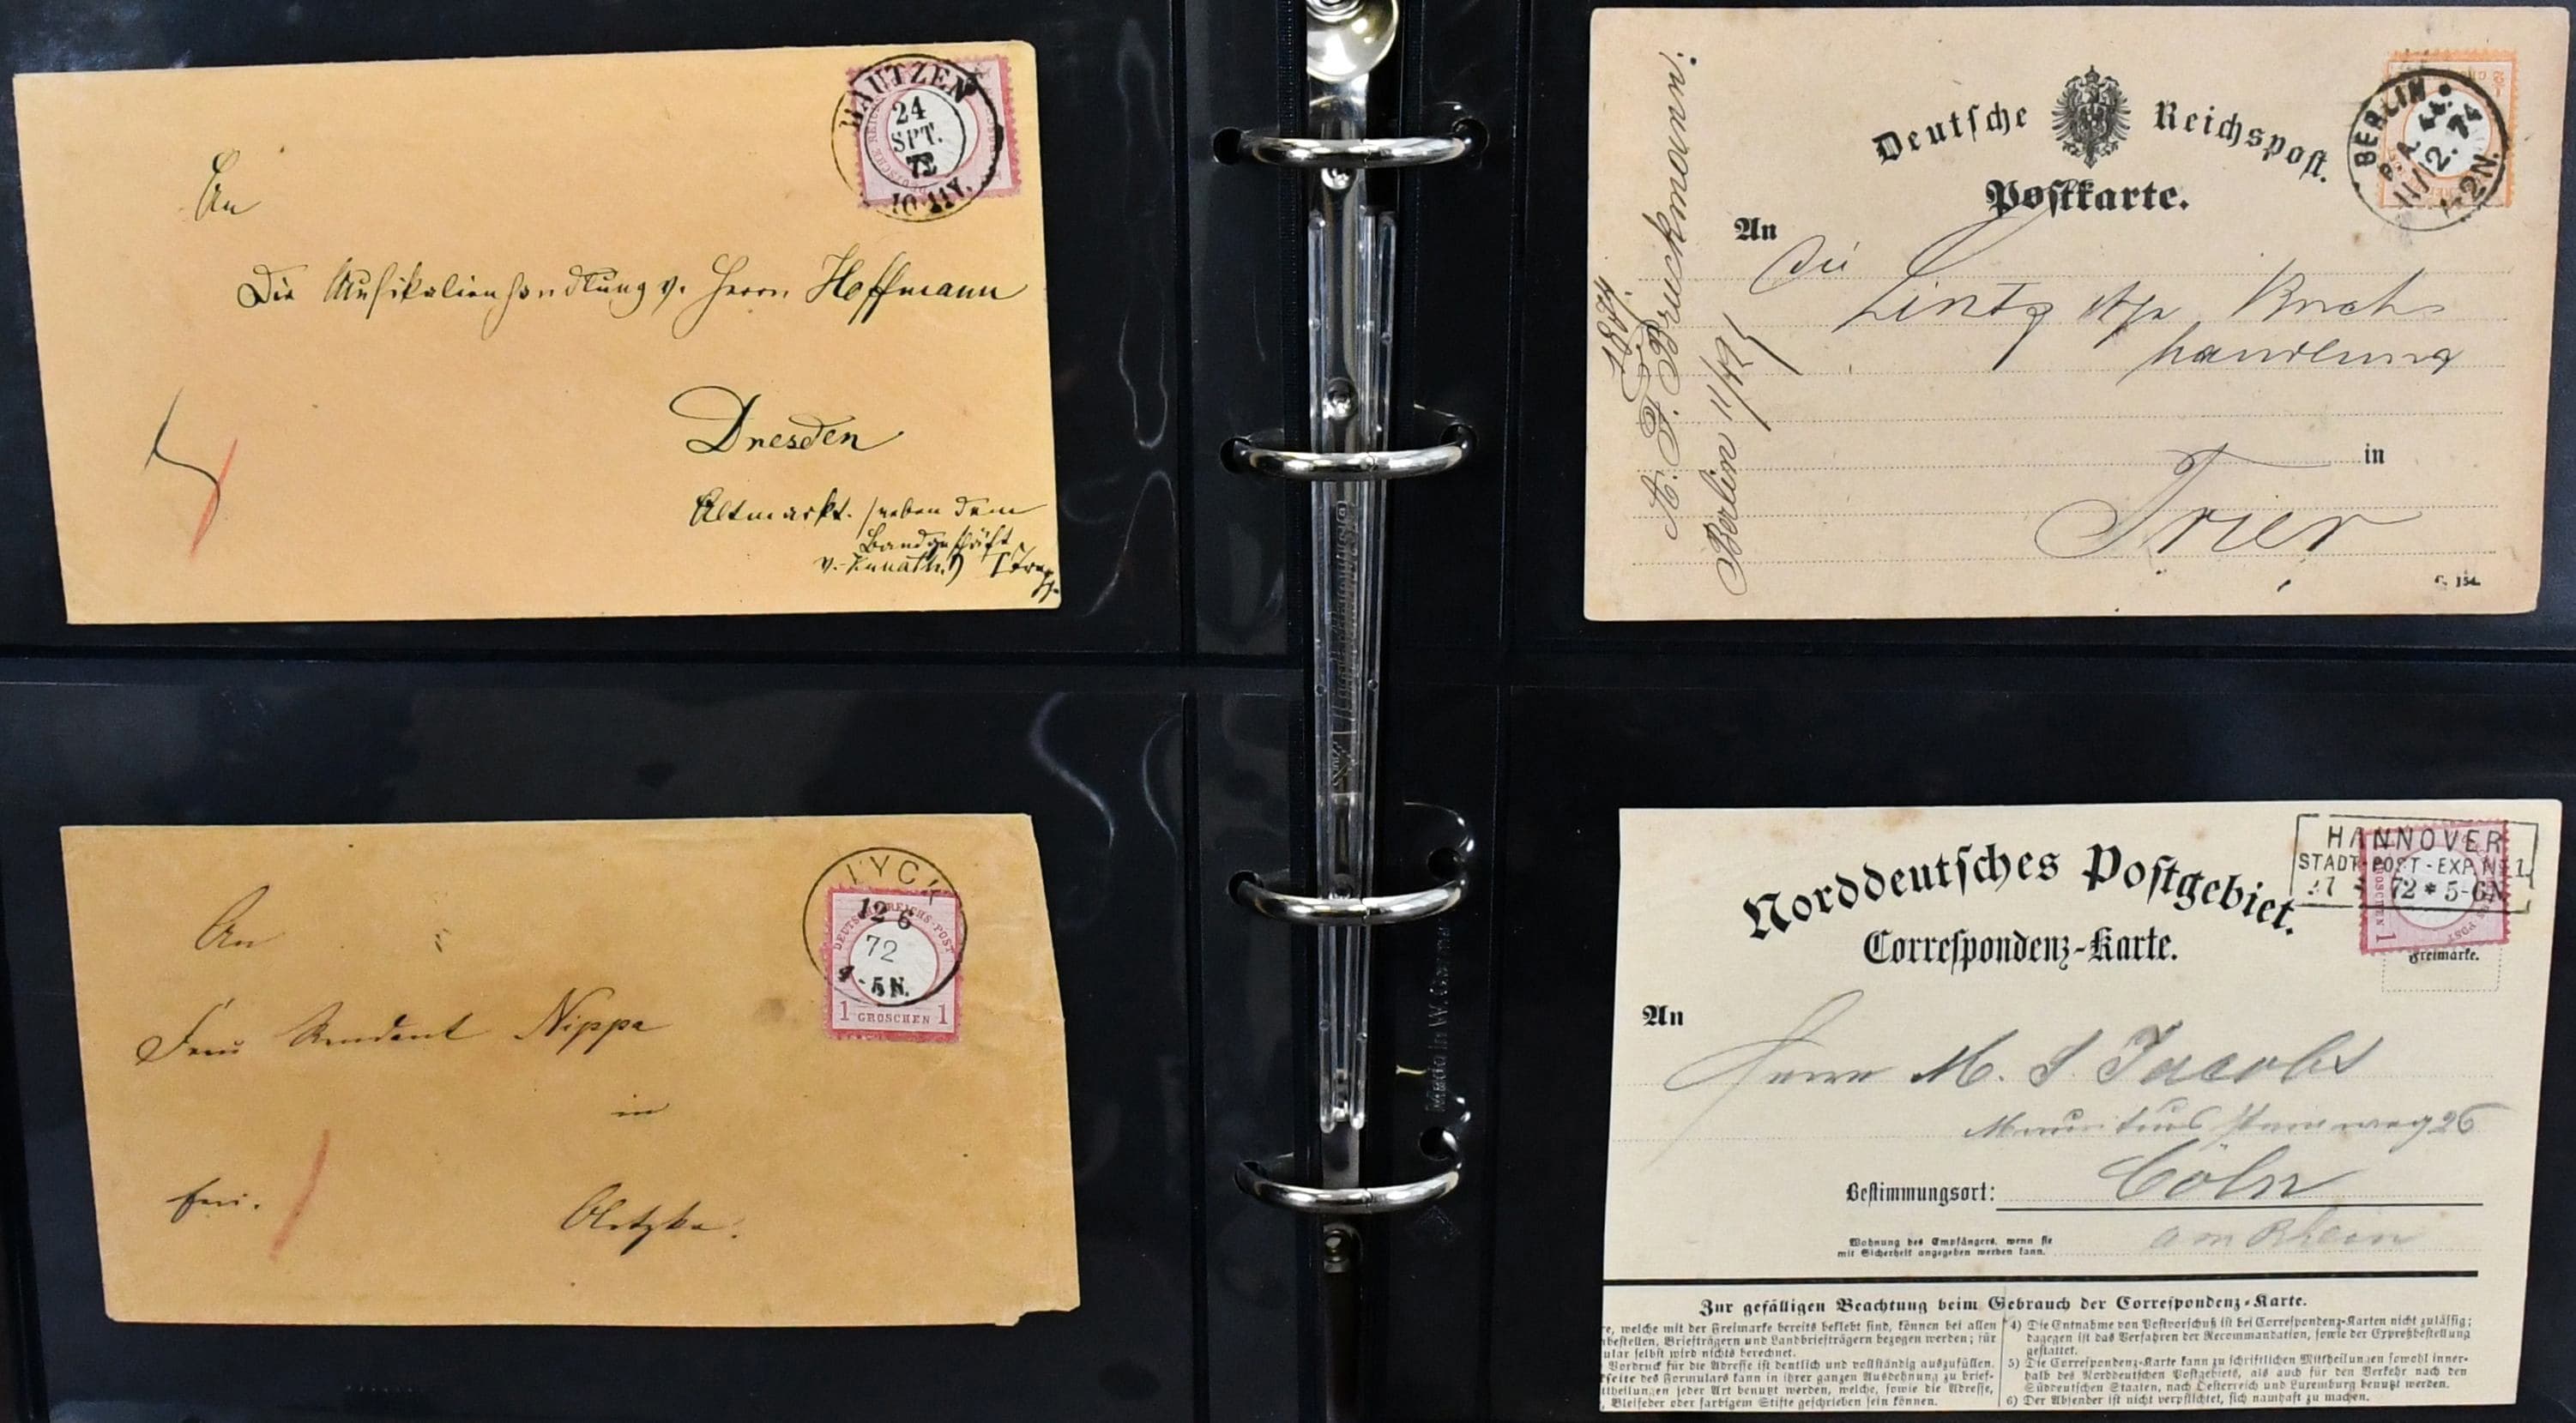 BAUTZEN
24
SPT.
72
10-11V.
An
Die Musikalienhandlung v. Herrn Hoffmann
Dresden
Altmarkt. (neben dem
Bandgeschäft
v. Kunath.)
Deutsche Reichspost.
Postkarte.
BERLIN
P.A.
11/12.74
1-2N.
An
Die
Lintz'sche Buch
handlung
in
Trier
1874.
A. F. Bruckmann.
Berlin 11/12
LYCK
12 6
72
4-5N.
DEUTSCHE REICHS-POST
1 GROSCHEN 1
An
Frau Rendant Nippa
in
frei.
Oletzko.
Norddeutsches Postgebiet.
Correspondenz-Karte.
HANNOVER
STADT-POST-EXP. No 1.
72 * 5-6N
Freimarke.
An
Herrn M. S. Jacobs
Mauritiussteinweg 26
Bestimmungsort: Cöln
am Rhein
Wohnung des Empfängers, wenn sie
mit Sicherheit angegeben werden kann.
Zur gefälligen Beachtung beim Gebrauch der Correspondenz-Karte.
welche mit der Freimarke bereits beklebt sind, können bei allen
Briefträgern und Landbriefträgern bezogen werden; für
selbst wird nichts berechnet.
Vordruck für die Adresse ist deutlich und vollständig auszufüllen.
des Formulars kann in ihrer ganzen Ausdehnung zu brief-
jeder Art benutzt werden, welche, sowie die Adresse,
Bleifeder oder farbigem Stifte geschrieben sein können.
4) Die Entnahme von Postvorschuß ist bei Correspondenz-Karten nicht zulässig;
dagegen ist das Verfahren der Recommandation, sowie der Expreßbestellung
gestattet.
5) Die Correspondenz-Karte kann zu schriftlichen Mittheilungen sowohl inner-
halb des Norddeutschen Postgebiets, als auch für den Verkehr nach den
Süddeutschen Staaten, nach Oesterreich und Luxemburg benutzt werden.
6) Der Absender ist nicht verpflichtet, sich namhaft zu machen.